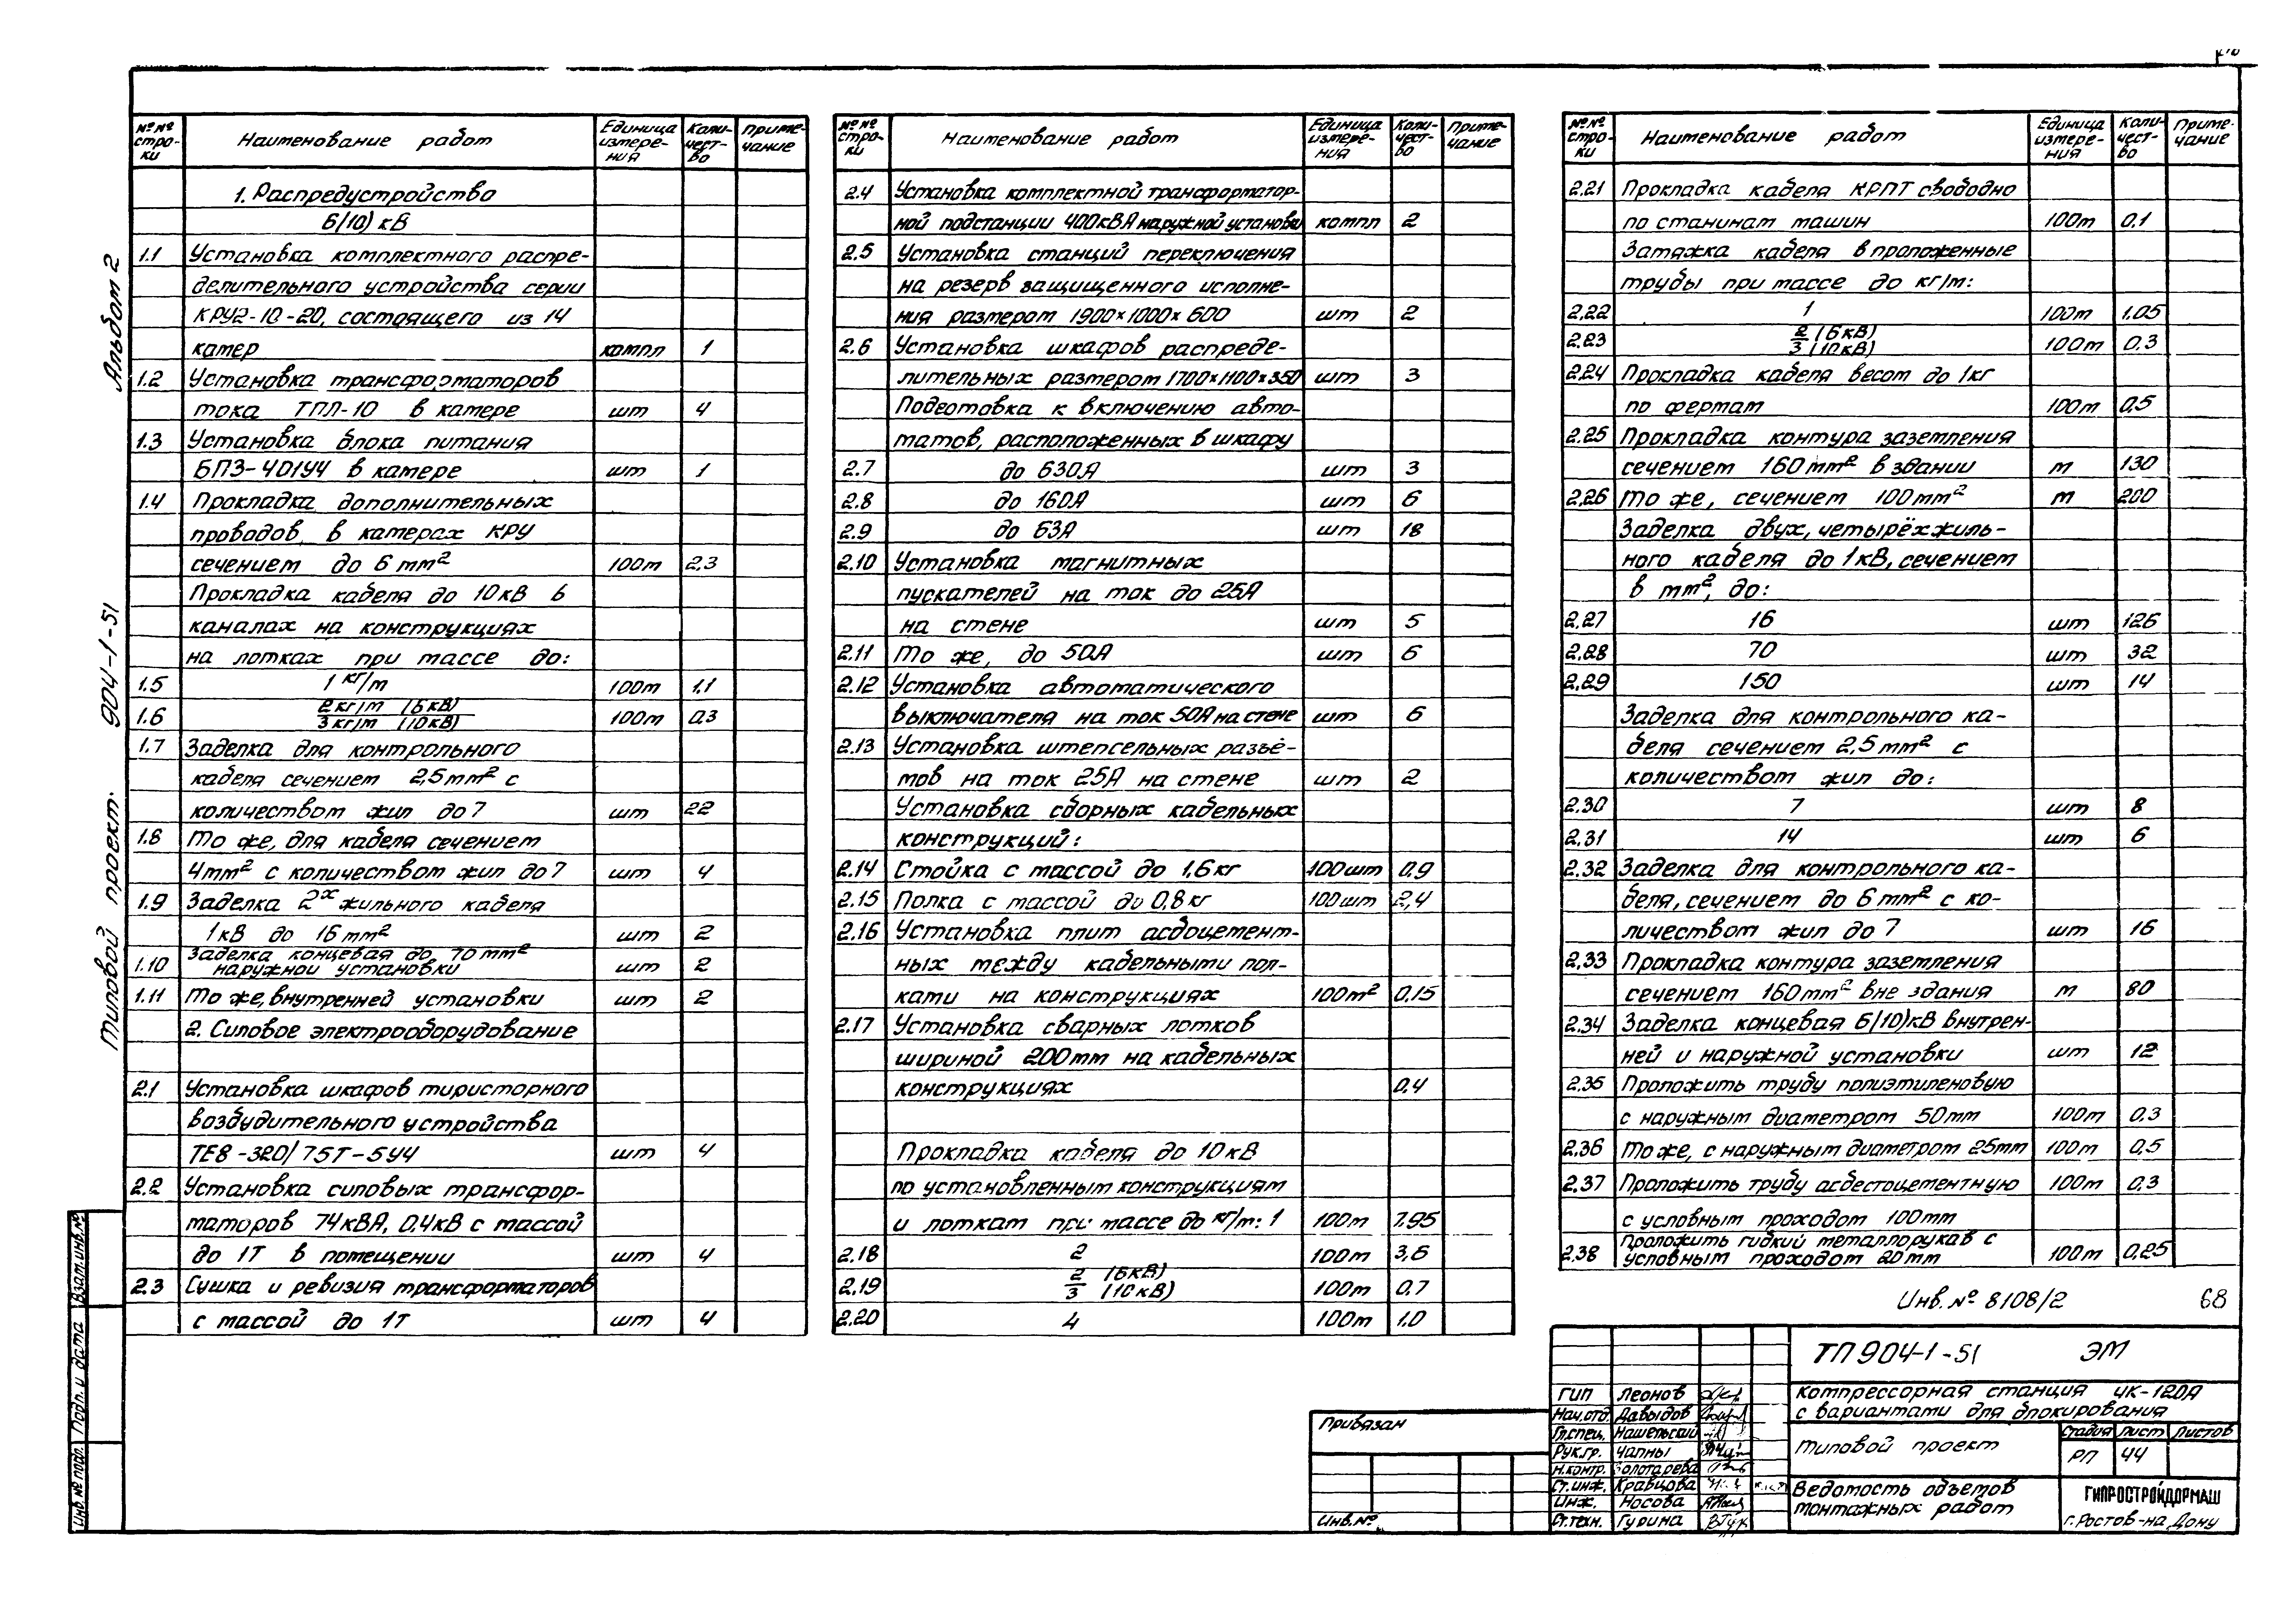 Альбом 2
Типовой проект. 904-1-51
№№ строки Наименование работ Единица измерения Количество Примечание
1. Распредустройство
6(10) кВ
1.1 Установка комплектного распре-
делительного устройства серии
КРУ2-10-20, состоящего из 14
камер компл 1
1.2 Установка трансформаторов
тока ТПЛ-10 в камере шт 4
1.3 Установка блока питания
БПЗ-401У4 в камере шт 1
1.4 Прокладка дополнительных
проводов в камерах КРУ
сечением до 6 mm² 100m 2.3
Прокладка кабеля до 10кВ в
каналах на конструкциях
на лотках при массе до:
1.5 1 кг/m 100m 1.1
1.6 2 кг/m (6кВ) / 3 кг/m (10кВ) 100m 0.3
1.7 Заделка для контрольного
кабеля сечением 2,5mm² с
количеством жил до 7 шт 22
1.8 То же, для кабеля сечением
4mm² с количеством жил до 7 шт 4
1.9 Заделка 2х жильного кабеля
1кВ до 16 mm² шт 2
1.10 Заделка концевая до 70 mm²
наружной установки шт 2
1.11 То же, внутренней установки шт 2
2. Силовое электрооборудование
2.1 Установка шкафов тиристорного
возбудительного устройства
ТЕ8-320/75Т-5У4 шт 4
2.2 Установка силовых трансфор-
маторов 74кВА, 0.4кВ с массой
до 1Т в помещении шт 4
2.3 Сушка и ревизия трансформаторов
с массой до 1Т шт 4
№№ строки Наименование работ Единица измерения Количество Примечание
2.4 Установка комплектной трансформатор-
ной подстанции 400кВА наружной установки компл 2
2.5 Установка станций переключения
на резерв защищенного исполне-
ния размером 1900×1000×600 шт 2
2.6 Установка шкафов распреде-
лительных размером 1700×1100×350 шт 3
Подготовка к включению авто-
матов, расположенных в шкафу
2.7 до 630А шт 3
2.8 до 160А шт 6
2.9 до 63А шт 18
2.10 Установка магнитных
пускателей на ток до 25А
на стене шт 5
2.11 То же, до 50А шт 6
2.12 Установка автоматического
выключателя на ток 50А на стене шт 6
2.13 Установка штепсельных разъё-
мов на ток 25А на стене шт 2
Установка сборных кабельных
конструкций:
2.14 Стойка с массой до 1,6 кг 100шт 0,9
2.15 Полка с массой до 0,8 кг 100шт 2,4
2.16 Установка плит асбоцемент-
ных между кабельными пол-
ками на конструкциях 100m² 0,15
2.17 Установка сварных лотков
шириной 200mm на кабельных
конструкциях 0,4
Прокладка кабеля до 10кВ
по установленным конструкциям
и лоткам при массе до кг/m: 1 100m 7.95
2.18 2 100m 3,6
2.19 2 (6кВ) / 3 (10кВ) 100m 0.7
2.20 4 100m 1.0
№№ строки Наименование работ Единица измерения Количество Примечание
2.21 Прокладка кабеля КРПТ свободно
по станинам машин 100m 0,1
Затяжка кабеля в проложенные
трубы при массе до кг/m:
2.22 1 100m 1.05
2.23 2 (6кВ) / 3 (10кВ) 100m 0.3
2.24 Прокладка кабеля весом до 1кг
по фермам 100m 0.5
2.25 Прокладка контура заземления
сечением 160mm² в здании m 130
2.26 То же, сечением 100mm² m 200
Заделка двух, четырёхжиль-
ного кабеля до 1кВ, сечением
в mm², до:
2.27 16 шт 126
2.28 70 шт 32
2.29 150 шт 14
Заделка для контрольного ка-
беля сечением 2,5mm² с
количеством жил до:
2.30 7 шт 8
2.31 14 шт 6
2.32 Заделка для контрольного ка-
беля, сечением до 6 mm² с ко-
личеством жил до 7 шт 16
2.33 Прокладка контура заземления
сечением 160mm² вне здания m 80
2.34 Заделка концевая 6(10)кВ внутрен-
ней и наружной установки шт 12
2.35 Проложить трубу полиэтиленовую
с наружным диаметром 50mm 100m 0.3
2.36 То же, с наружным диаметром 25mm 100m 0,5
2.37 Проложить трубу асбестоцементную 100m 0.3
с условным проходом 100mm
2.38 Проложить гибкий металлорукав с
условным проходом 20mm 100m 0.25
Инв. № 8108/2 68
Взам.инв.№
Подп. и дата
Инв.№ подл.
Привязан
Инв.№
ГИП Леонов
Нач.отд. Давыдов
Гл.спец. Нашельский
Рук.гр. Чапны
Н.контр. Золотарева
Ст.инж. Кравцова
Инж. Носова
Ст.техн. Гурина
ТП 904-1-51 ЭМ
Компрессорная станция ЧК-120А
с вариантами для блокирования
Типовой проект
Стадия Лист Листов
РП 44
Ведомость объемов
монтажных работ
ГИПРОСТРОЙДОРМАШ
г.Ростов-на Дону